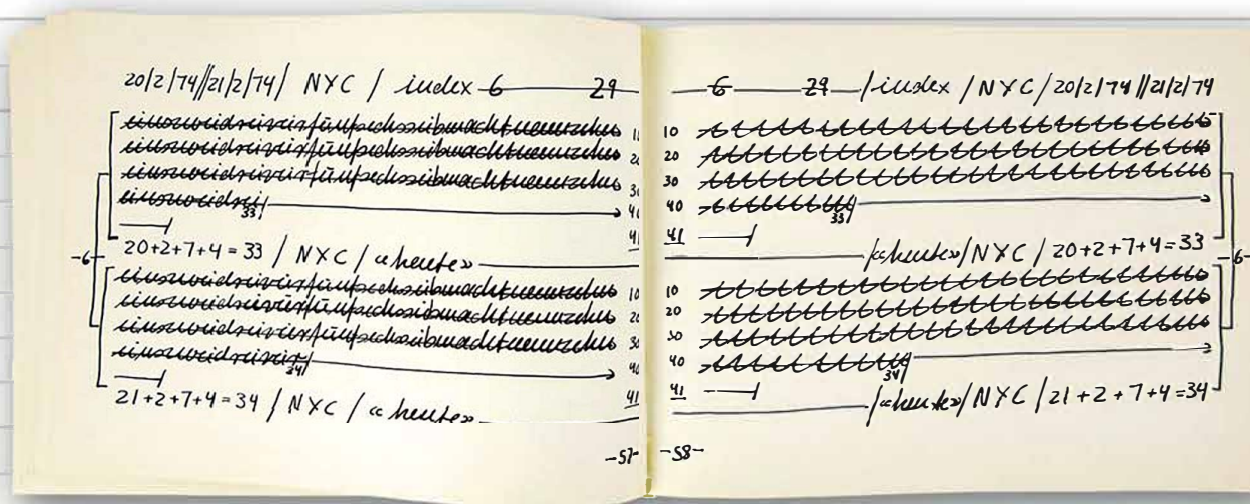 20/2/74//21/2/74/ NYC / index 6 29
einszweidreivierfünfsechssiebenachtneunzehn
einszweidreivierfünfsechssiebenachtneunzehn
einszweidreivierfünfsechssiebenachtneunzehn 30
einszweidrei/ 33 40
41
20+2+7+4=33 / NYC / «heute»
-6-
einszweidreivierfünfsechssiebenachtneunzehn 10
einszweidreivierfünfsechssiebenachtneunzehn 20
einszweidreivierfünfsechssiebenachtneunzehn 30
einszweidreivier/ 34 40
41
21+2+7+4=34 / NYC / «heute»
-57-
6 29 /index /NYC/20/2/74//21/2/74
10
20
30
40 33
41
/«heute»/NYC/20+2+7+4=33
-6-
10
20
30
40 34
41
/«heute»/NYC/21+2+7+4=34
-58-